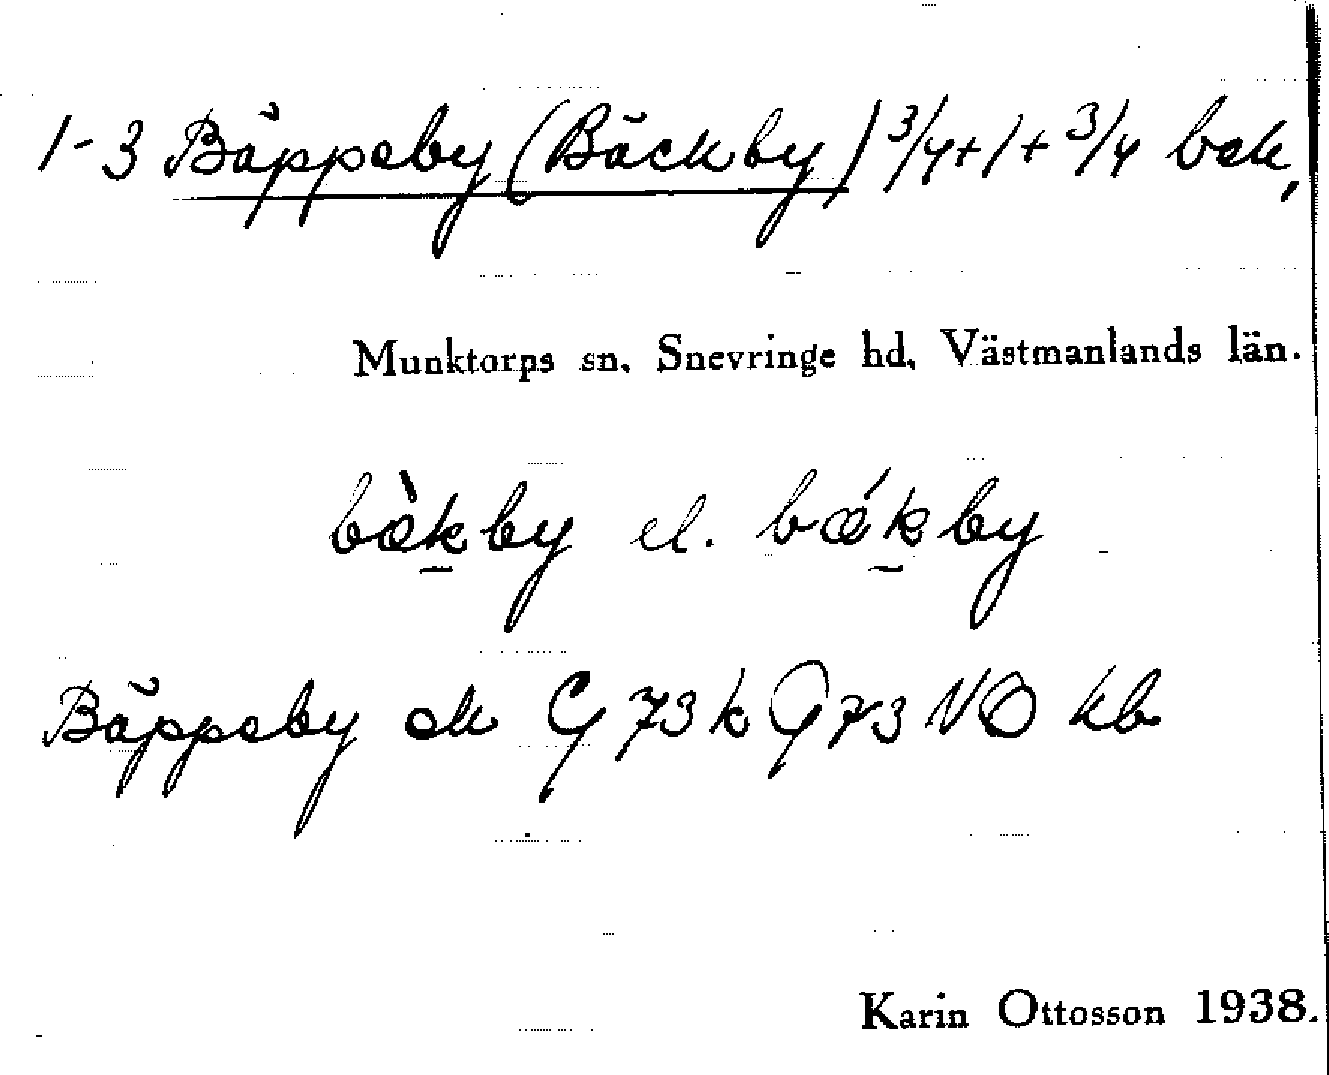 1-3 Bäppeby (Bäckby) 3/4+1+3/4 bek,
Munktorps sn, Snevringe hd, Västmanlands län.
bæ̀kby el. bǽkby
Bäppeby ek G 73 k G 73 NO kb
Karin Ottosson 1938.